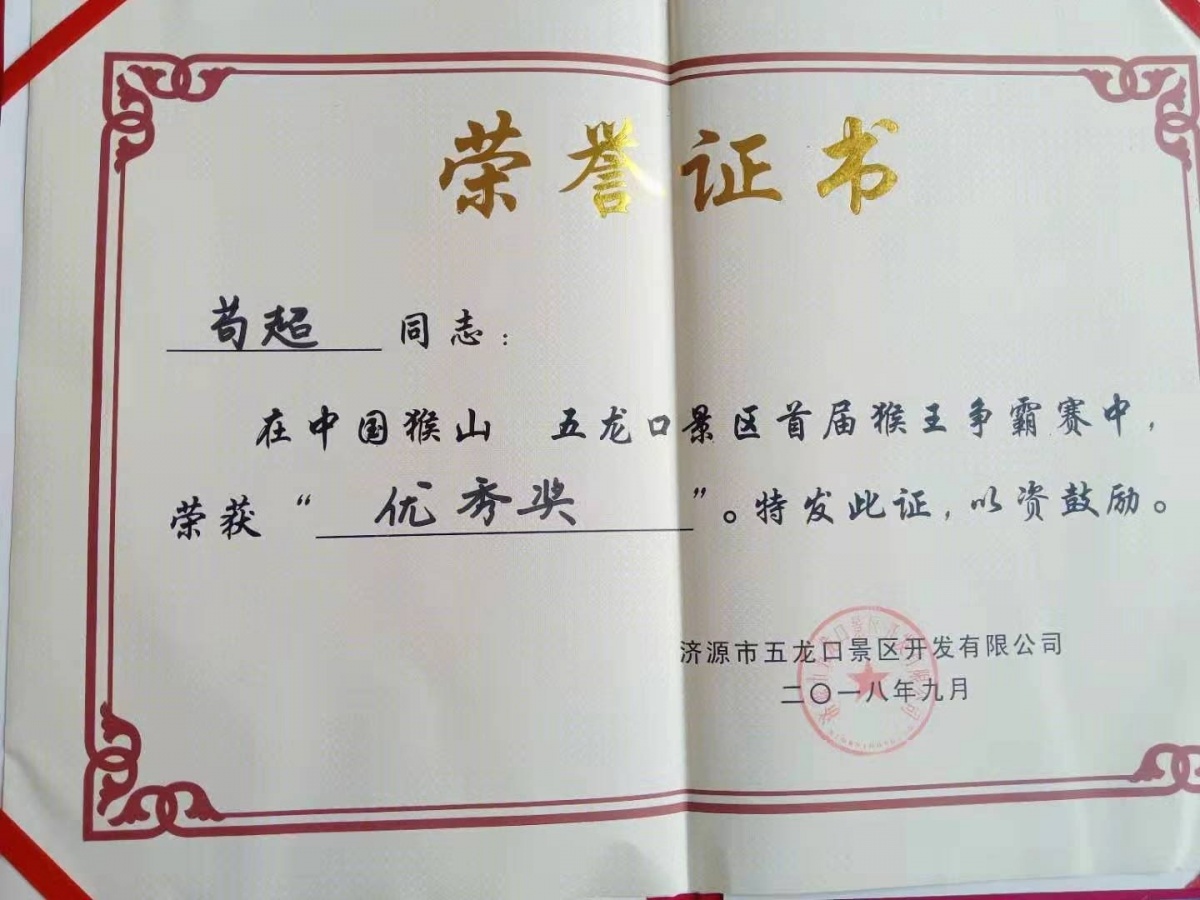 荣誉证书
苟超 同志：
在中国猴山 五龙口景区首届猴王争霸赛中，
荣获“ 优秀奖 ”。特发此证，以资鼓励。
济源市五龙口景区开发有限公司
二〇一八年九月